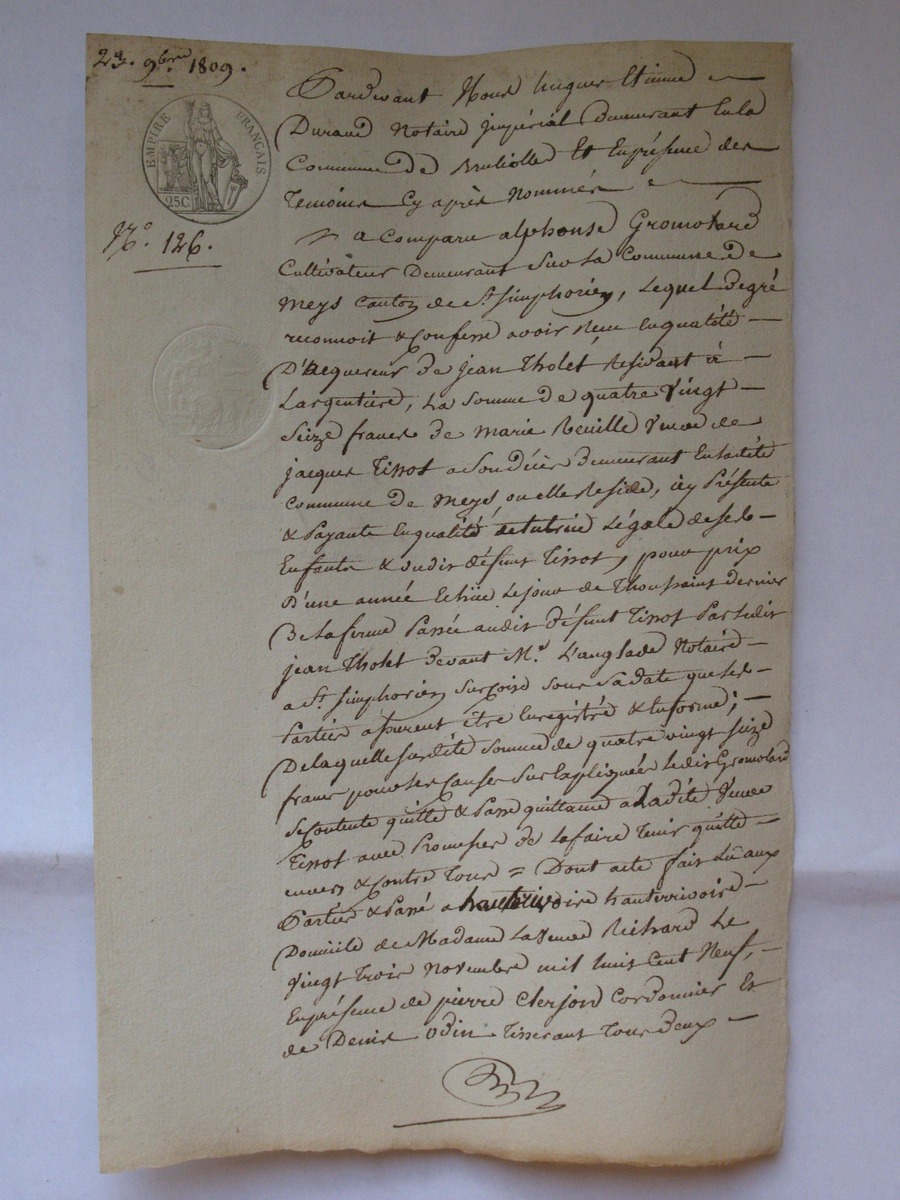 23. 9bre 1809.
EMPIRE FRANÇAIS
25C
No. 126.
Pardevant Nous hugues Etienne
Durand Notaire jmpérial Demeurant En la
Commune De Brulliolle Et En présence des
Temoins Cy après Nommés
a Comparu alphonse Gromolard
Cultivateur Demeurant Sur La Commune De
Meys Canton de St. Simphorien, Lequel De gré
reconnoit & Confesse avoir Reçu En qualité
D'acquereur De jean Tholet Residant à
Largentiere, La Somme De quatre Vingt
Seize francs De marie Reville Veuve de
jacques Tissot a Son décès Demeurant En ladite
Commune De Meys, ou elle Reside, icy Présente
& Payante En qualité de tutrice Légale de ses
Enfants & dudit défunt Tissot, pour prix
D'une année Echüe Le jour de Thoussaint dernier
De la ferme Passée audit Défunt Tissot Par ledit
jean Tholet Devant Me. L'anglade Notaire
a St. Simphorien Sur Coise Sous Sa date que les
Parties assurent être Enregistré & En forme;
De laquelle Susdite Somme de quatre vingt Seize
francs pour les Causes Sus Expliquées Ledit Gromolard
Se Contente quitte & Passe quittance a Ladite Veuve
Tissot avec Promesse De la faire Tenir quitte
envers & Contre Tous = Dont acte fait Lû aux
Parties & Passé a hauterivoire hauterrivoire
Domicile de Madame La Veuve Richard Le
Vingt Trois Novembre mil huit Cent Neuf,
En présence de pierre Clerjon Cordonnier Et
de Denis Odin Tisserant Tous Deux